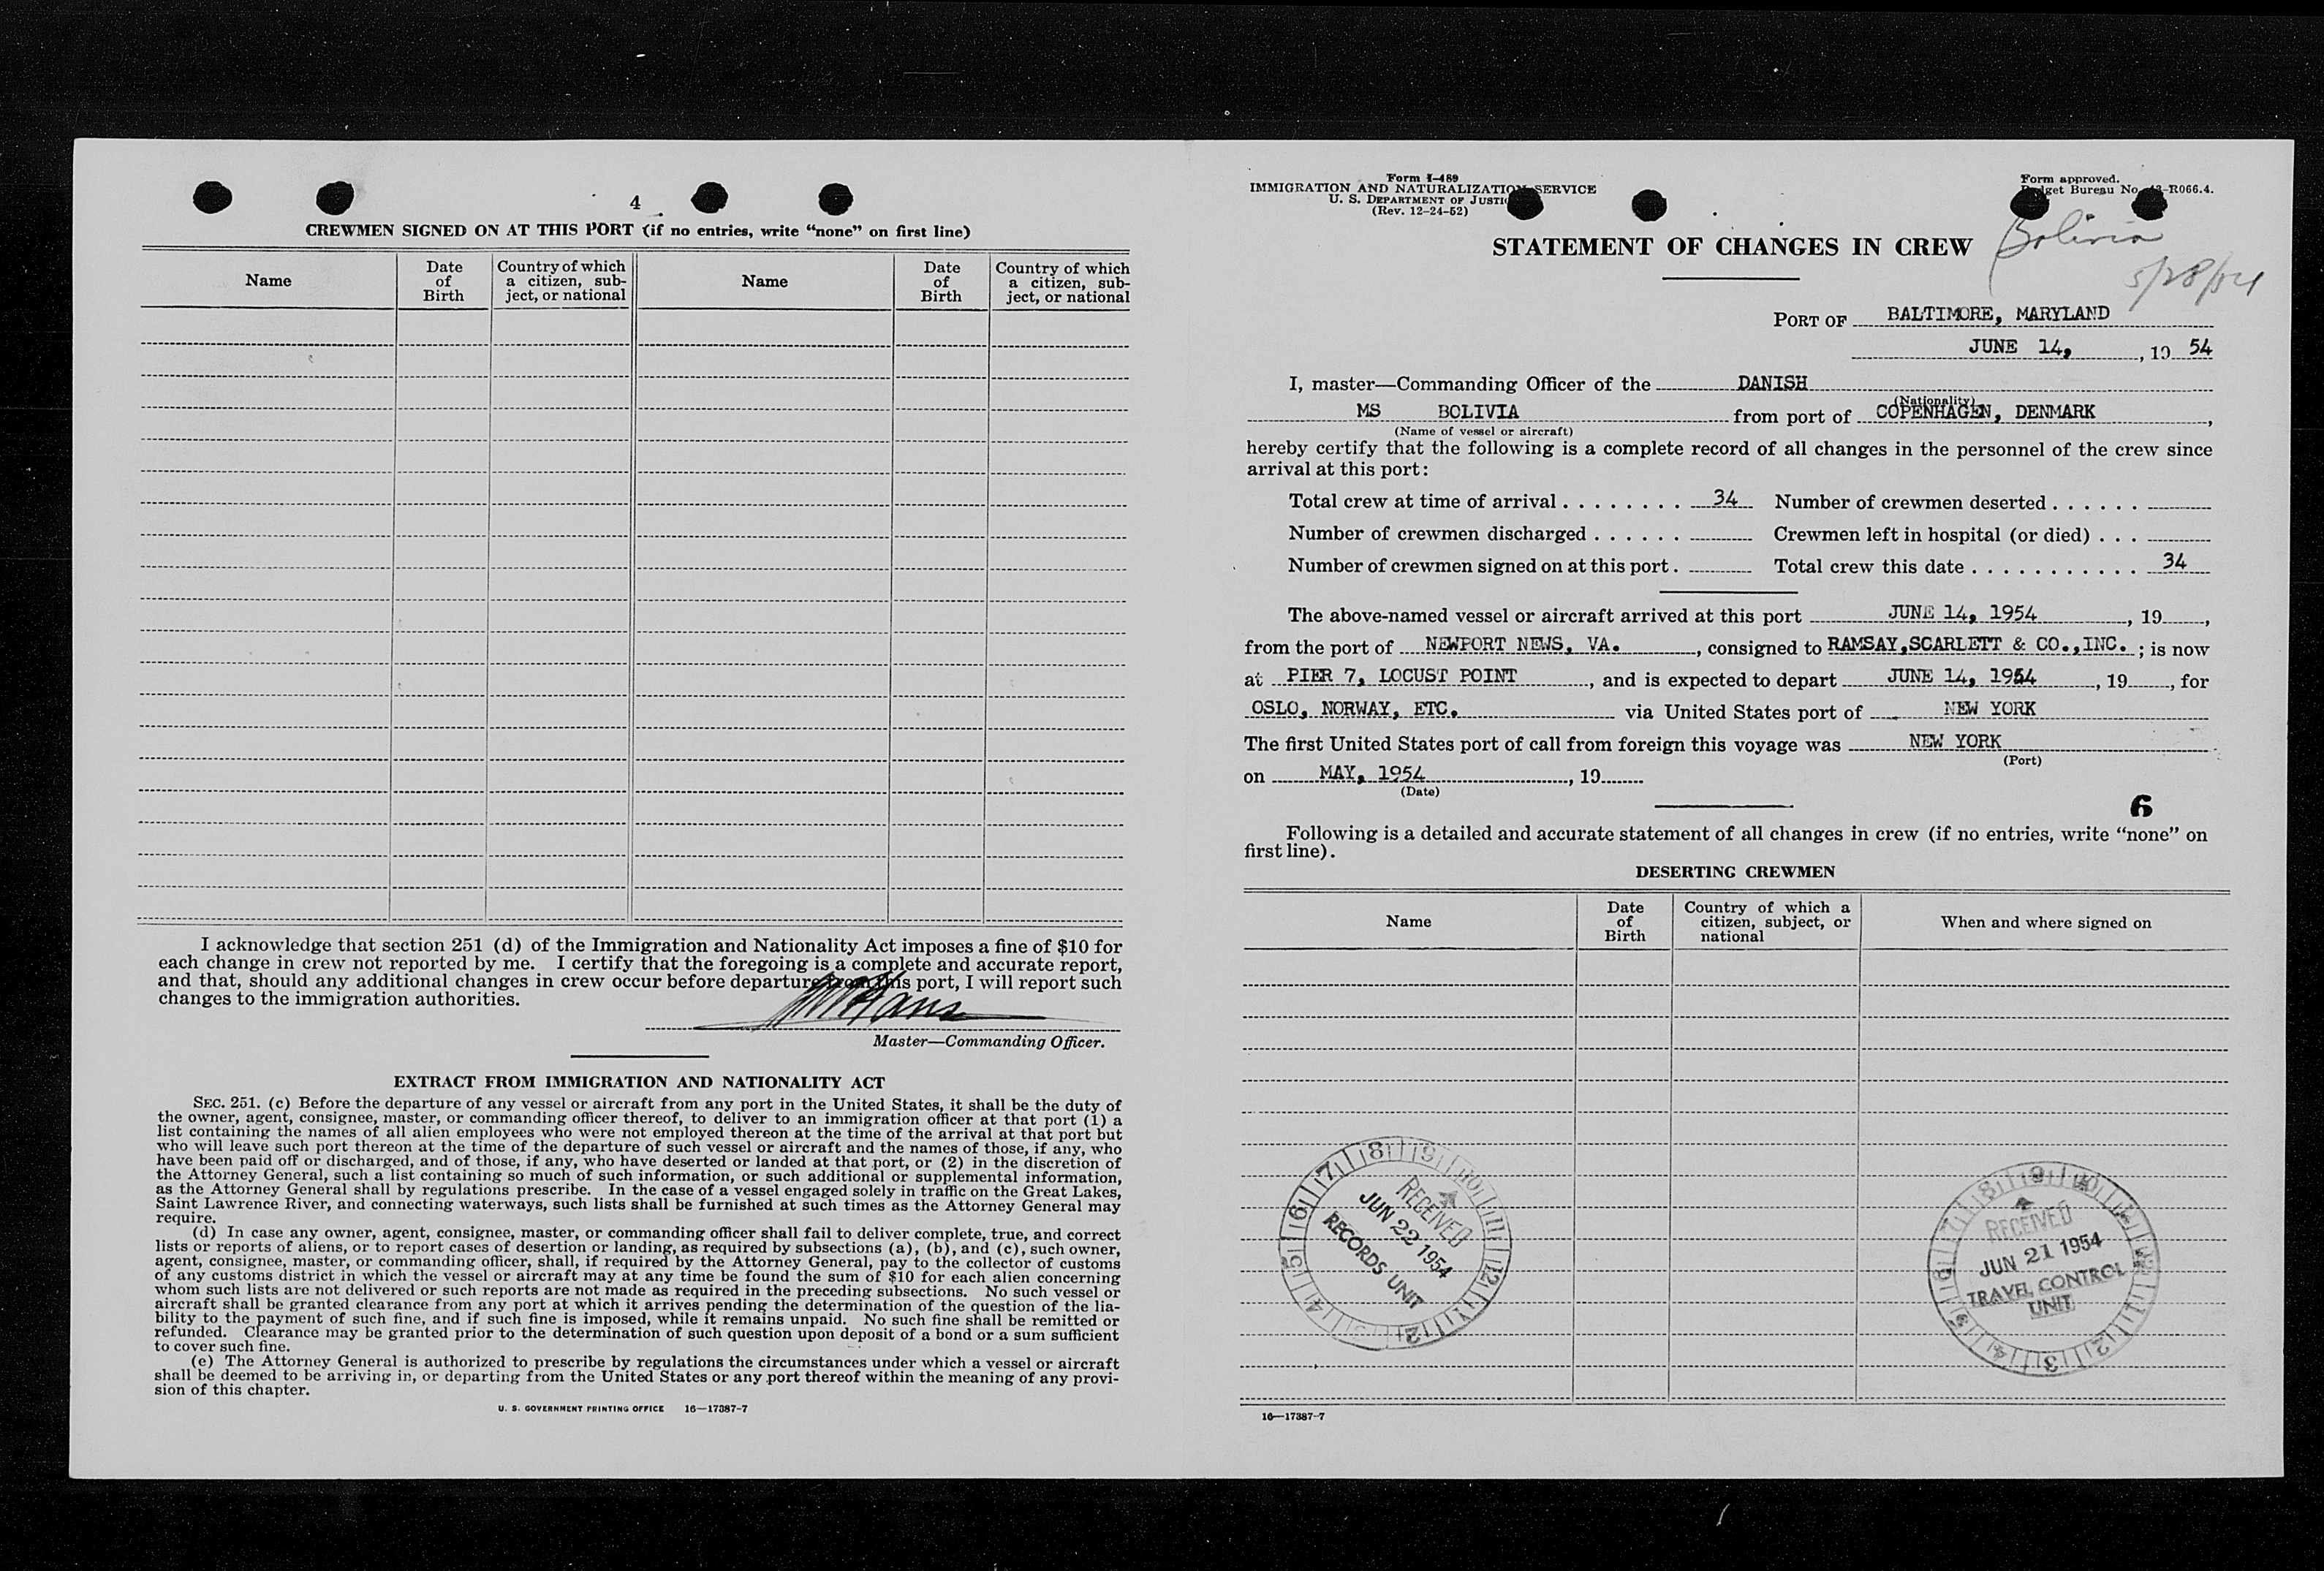 4
CREWMEN SIGNED ON AT THIS PORT (if no entries, write “none” on first line)
Name
Date of Birth
Country of which a citizen, subject, or national
Name
Date of Birth
Country of which a citizen, subject, or national
I acknowledge that section 251 (d) of the Immigration and Nationality Act imposes a fine of $10 for
each change in crew not reported by me. I certify that the foregoing is a complete and accurate report,
and that, should any additional changes in crew occur before departure from this port, I will report such
changes to the immigration authorities.
Master—Commanding Officer.
EXTRACT FROM IMMIGRATION AND NATIONALITY ACT
SEC. 251. (c) Before the departure of any vessel or aircraft from any port in the United States, it shall be the duty of
the owner, agent, consignee, master, or commanding officer thereof, to deliver to an immigration officer at that port (1) a
list containing the names of all alien employees who were not employed thereon at the time of the arrival at that port but
who will leave such port thereon at the time of the departure of such vessel or aircraft and the names of those, if any, who
have been paid off or discharged, and of those, if any, who have deserted or landed at that port, or (2) in the discretion of
the Attorney General, such a list containing so much of such information, or such additional or supplemental information,
as the Attorney General shall by regulations prescribe. In the case of a vessel engaged solely in traffic on the Great Lakes,
Saint Lawrence River, and connecting waterways, such lists shall be furnished at such times as the Attorney General may
require.
(d) In case any owner, agent, consignee, master, or commanding officer shall fail to deliver complete, true, and correct
lists or reports of aliens, or to report cases of desertion or landing, as required by subsections (a), (b), and (c), such owner,
agent, consignee, master, or commanding officer, shall, if required by the Attorney General, pay to the collector of customs
of any customs district in which the vessel or aircraft may at any time be found the sum of $10 for each alien concerning
whom such lists are not delivered or such reports are not made as required in the preceding subsections. No such vessel or
aircraft shall be granted clearance from any port at which it arrives pending the determination of the question of the lia-
bility to the payment of such fine, and if such fine is imposed, while it remains unpaid. No such fine shall be remitted or
refunded. Clearance may be granted prior to the determination of such question upon deposit of a bond or a sum sufficient
to cover such fine.
(e) The Attorney General is authorized to prescribe by regulations the circumstances under which a vessel or aircraft
shall be deemed to be arriving in, or departing from the United States or any port thereof within the meaning of any provi-
sion of this chapter.
U. S. GOVERNMENT PRINTING OFFICE 16—17387-7
Form I-489
IMMIGRATION AND NATURALIZATION SERVICE
U. S. DEPARTMENT OF JUSTICE
(Rev. 12-24-52)
Form approved.
Budget Bureau No. 43-R066.4.
Bolivia
5/28/54
STATEMENT OF CHANGES IN CREW
PORT OF BALTIMORE, MARYLAND
JUNE 14, , 19 54
I, master—Commanding Officer of the DANISH
(Nationality)
MS BOLIVIA from port of COPENHAGEN, DENMARK,
(Name of vessel or aircraft)
hereby certify that the following is a complete record of all changes in the personnel of the crew since
arrival at this port:
Total crew at time of arrival . . . . . . . . 34 Number of crewmen deserted . . . . . .
Number of crewmen discharged . . . . . . Crewmen left in hospital (or died) . . .
Number of crewmen signed on at this port . Total crew this date . . . . . . . . . . . 34
The above-named vessel or aircraft arrived at this port JUNE 14, 1954, 19,
from the port of NEWPORT NEWS, VA., consigned to RAMSAY,SCARLETT & CO.,INC. ; is now
at PIER 7, LOCUST POINT, and is expected to depart JUNE 14, 1954, 19, for
OSLO, NORWAY, ETC. via United States port of NEW YORK
The first United States port of call from foreign this voyage was NEW YORK
(Port)
on MAY, 1954, 19
(Date)
6
Following is a detailed and accurate statement of all changes in crew (if no entries, write “none” on
first line).
DESERTING CREWMEN
Name
Date of Birth
Country of which a citizen, subject, or national
When and where signed on
RECEIVED
JUN 22 1954
RECORDS UNIT
RECEIVED
JUN 21 1954
TRAVEL CONTROL
UNIT
16—17387-7